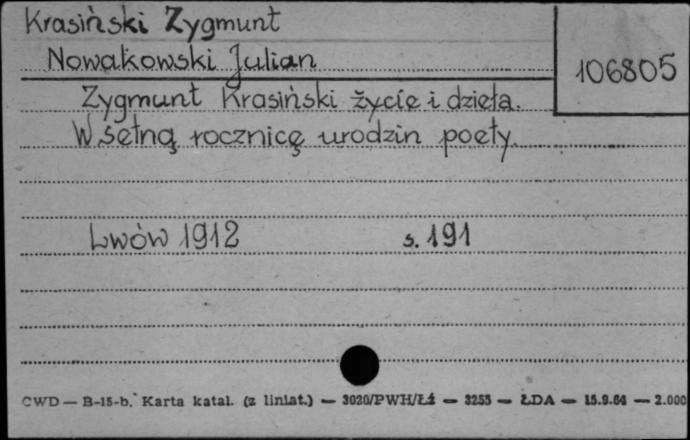 Krasiński Zygmunt
Nowakowski Julian
106805
Zygmunt Krasiński życie i dzieła.
W setną rocznicę urodzin poety.
Lwów 1912 s. 191
CWD — B-15-b. Karta katal. (z liniat.) — 3020/PWH/Łź — 3255 — ŁDA — 15.9.64 — 2.000